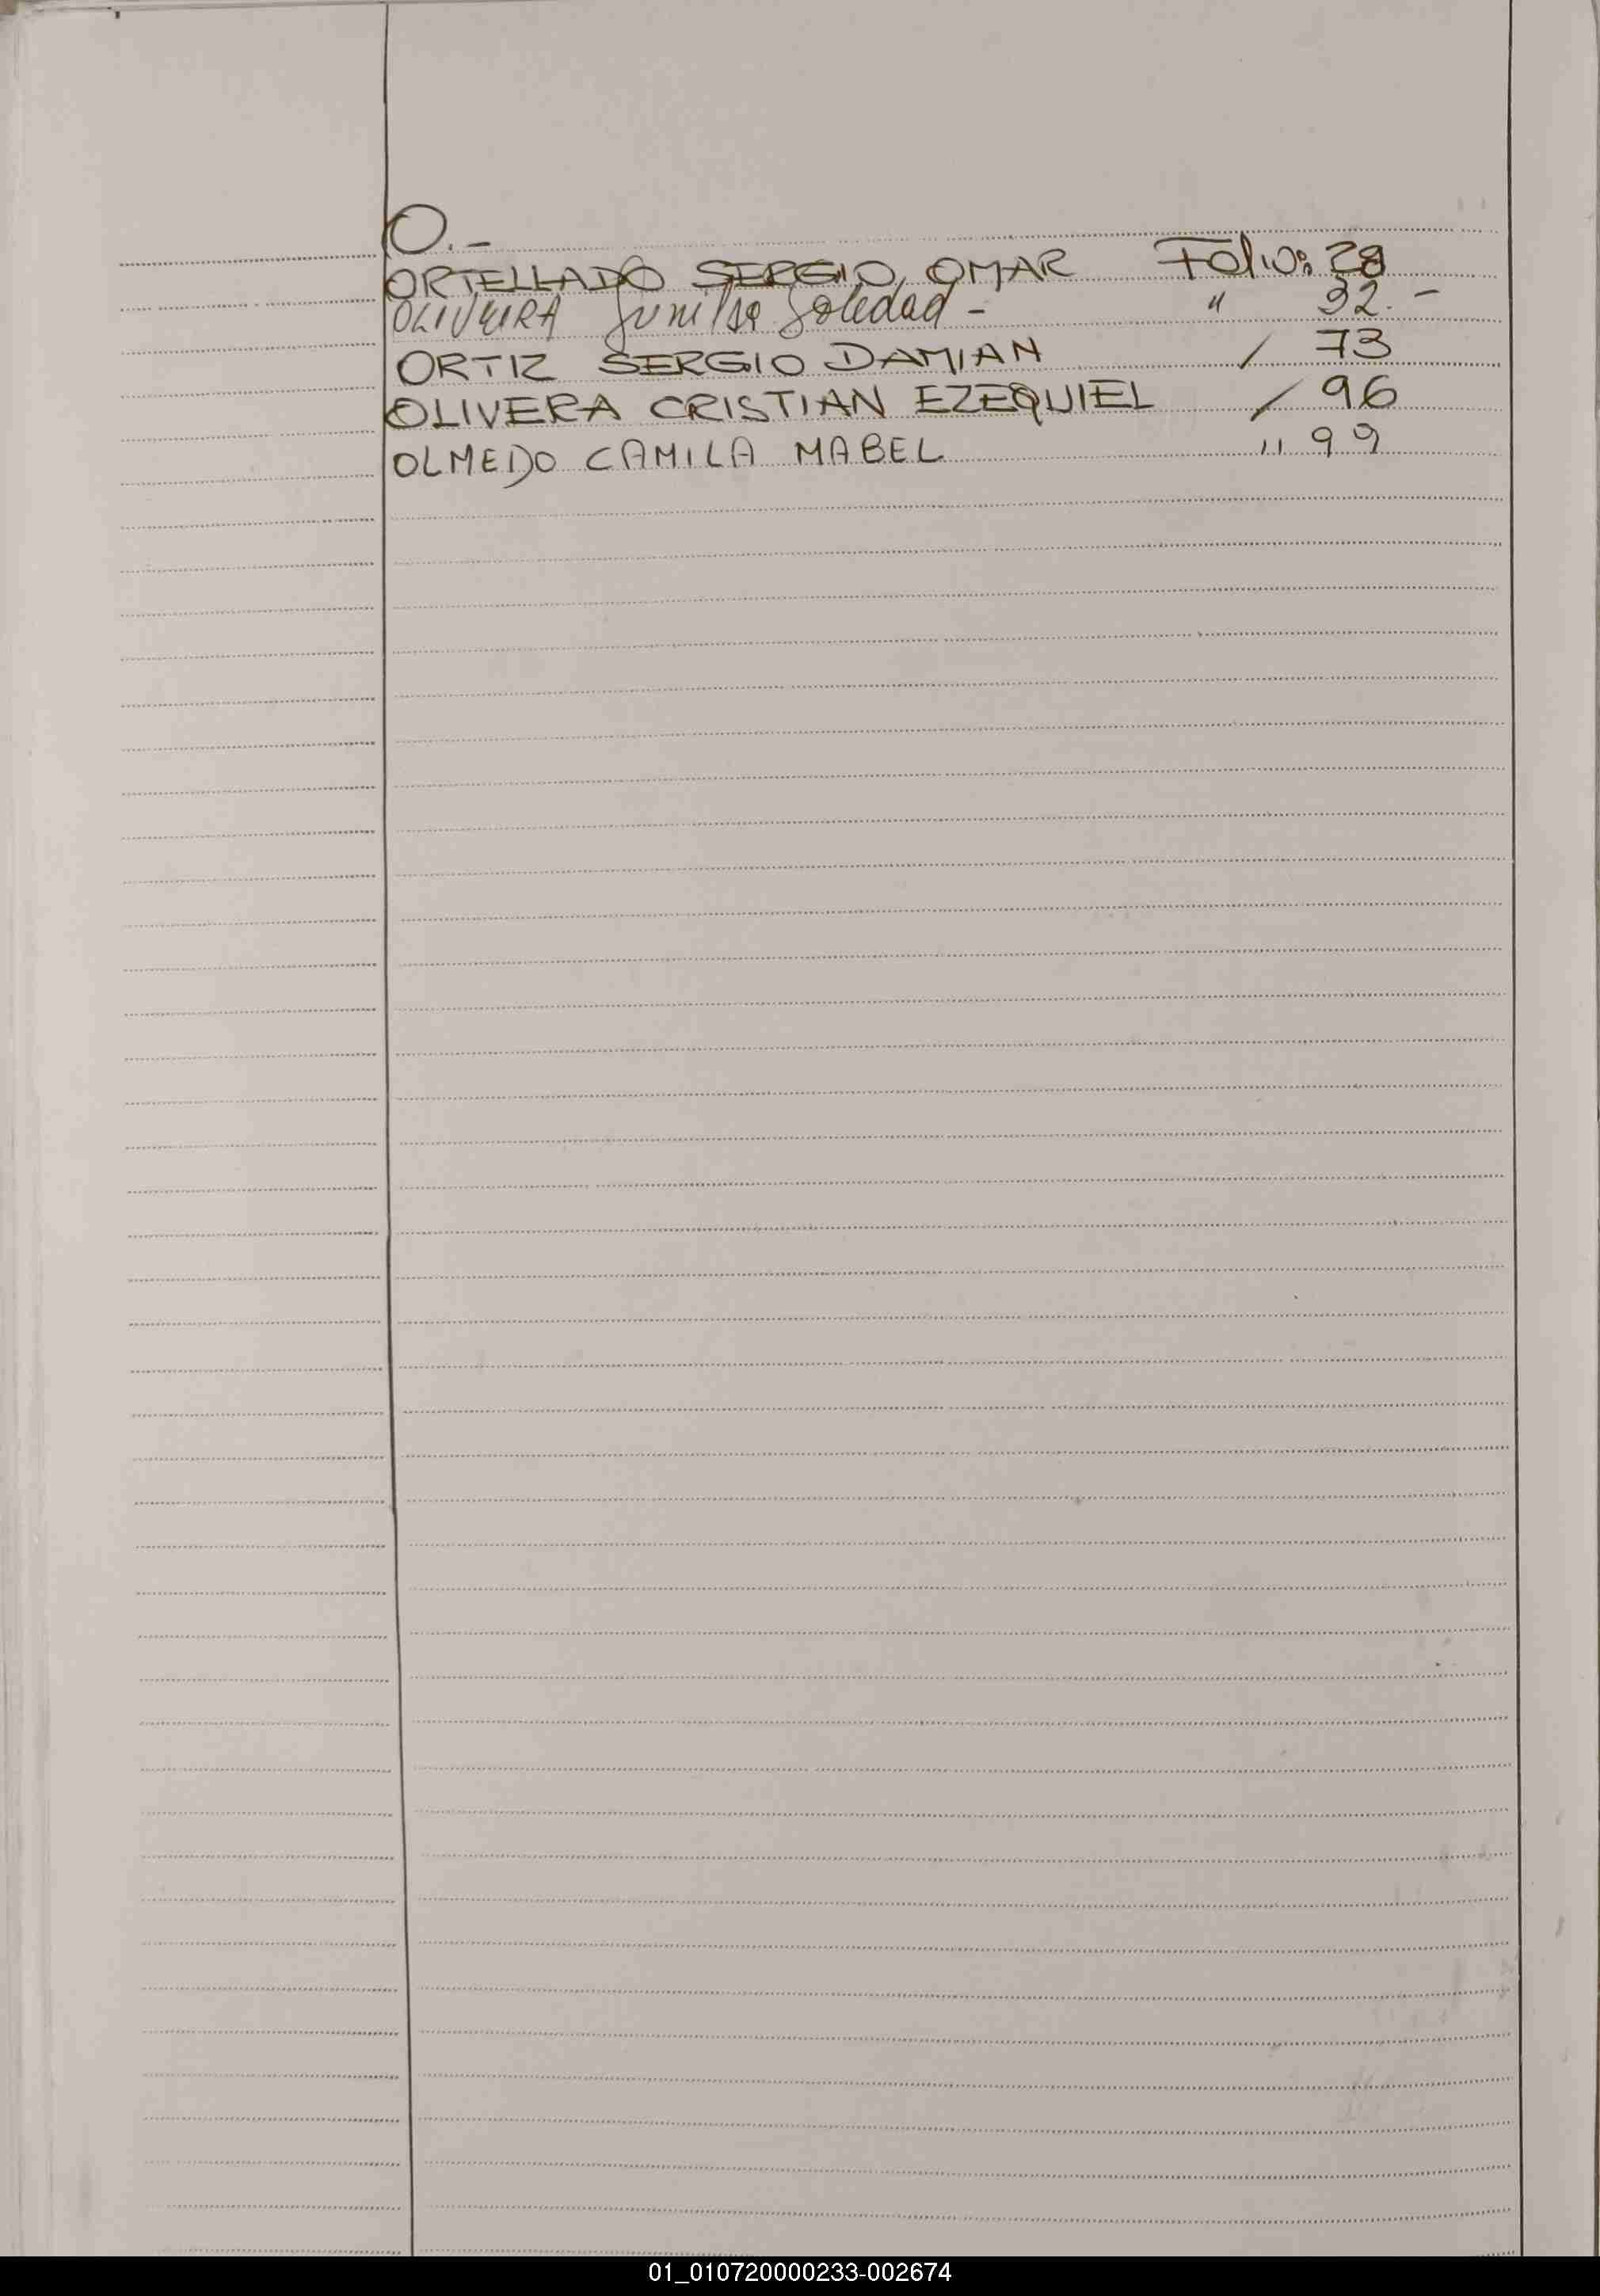 O.-
ORTELLADO SERGIO, OMAR Folio: 28
OLIVEIRA Soledad - " 32.-
ORTIZ SERGIO DAMIAN / 73
OLIVERA CRISTIAN EZEQUIEL / 96
OLMEDO CAMILA MABEL " 99
01_010720000233-002674